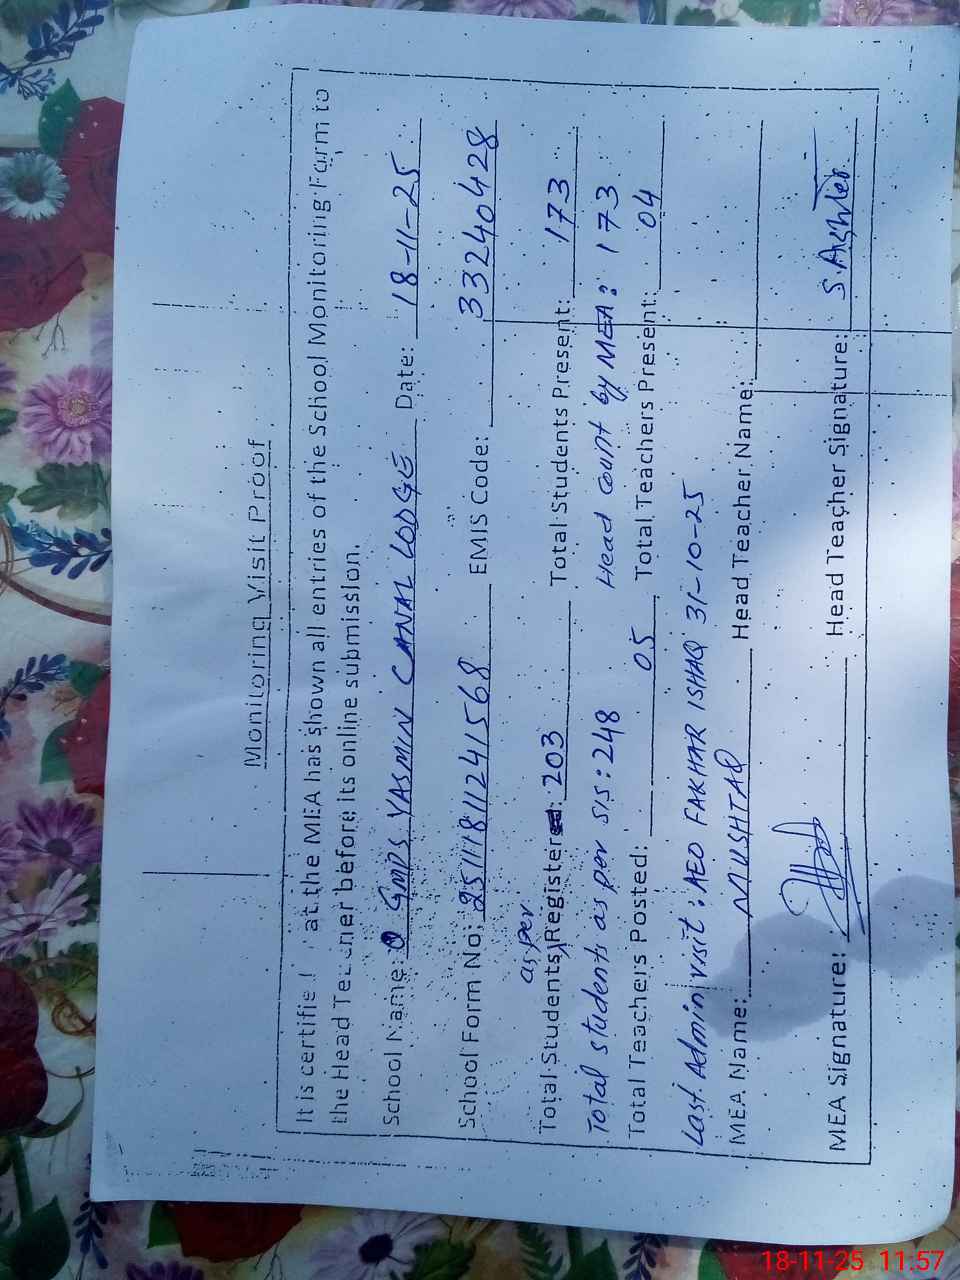 Monitoring Visit Proof
It is certifie at the MEA has shown all entries of the School Monitoring Form to
the Head Teacher before its online submission.
School Name: GMPS YASMIN CANAL LODGE Date: 18-11-25
School Form No: 25111811241568 EMIS Code: 33240428
as per
Total Students Registered: 203 Total Students Present: 173
Total students as per SIS: 248 Head count by MEA: 173
Total Teachers Posted: 05 Total Teachers Present: 04
Last Admin visit: AEO FAKHAR ISHAQ 31-10-25
MEA Name: MUSHTAQ Head Teacher Name:
MEA Signature: Head Teacher Signature: S. Akhter
18-11-25 11:57